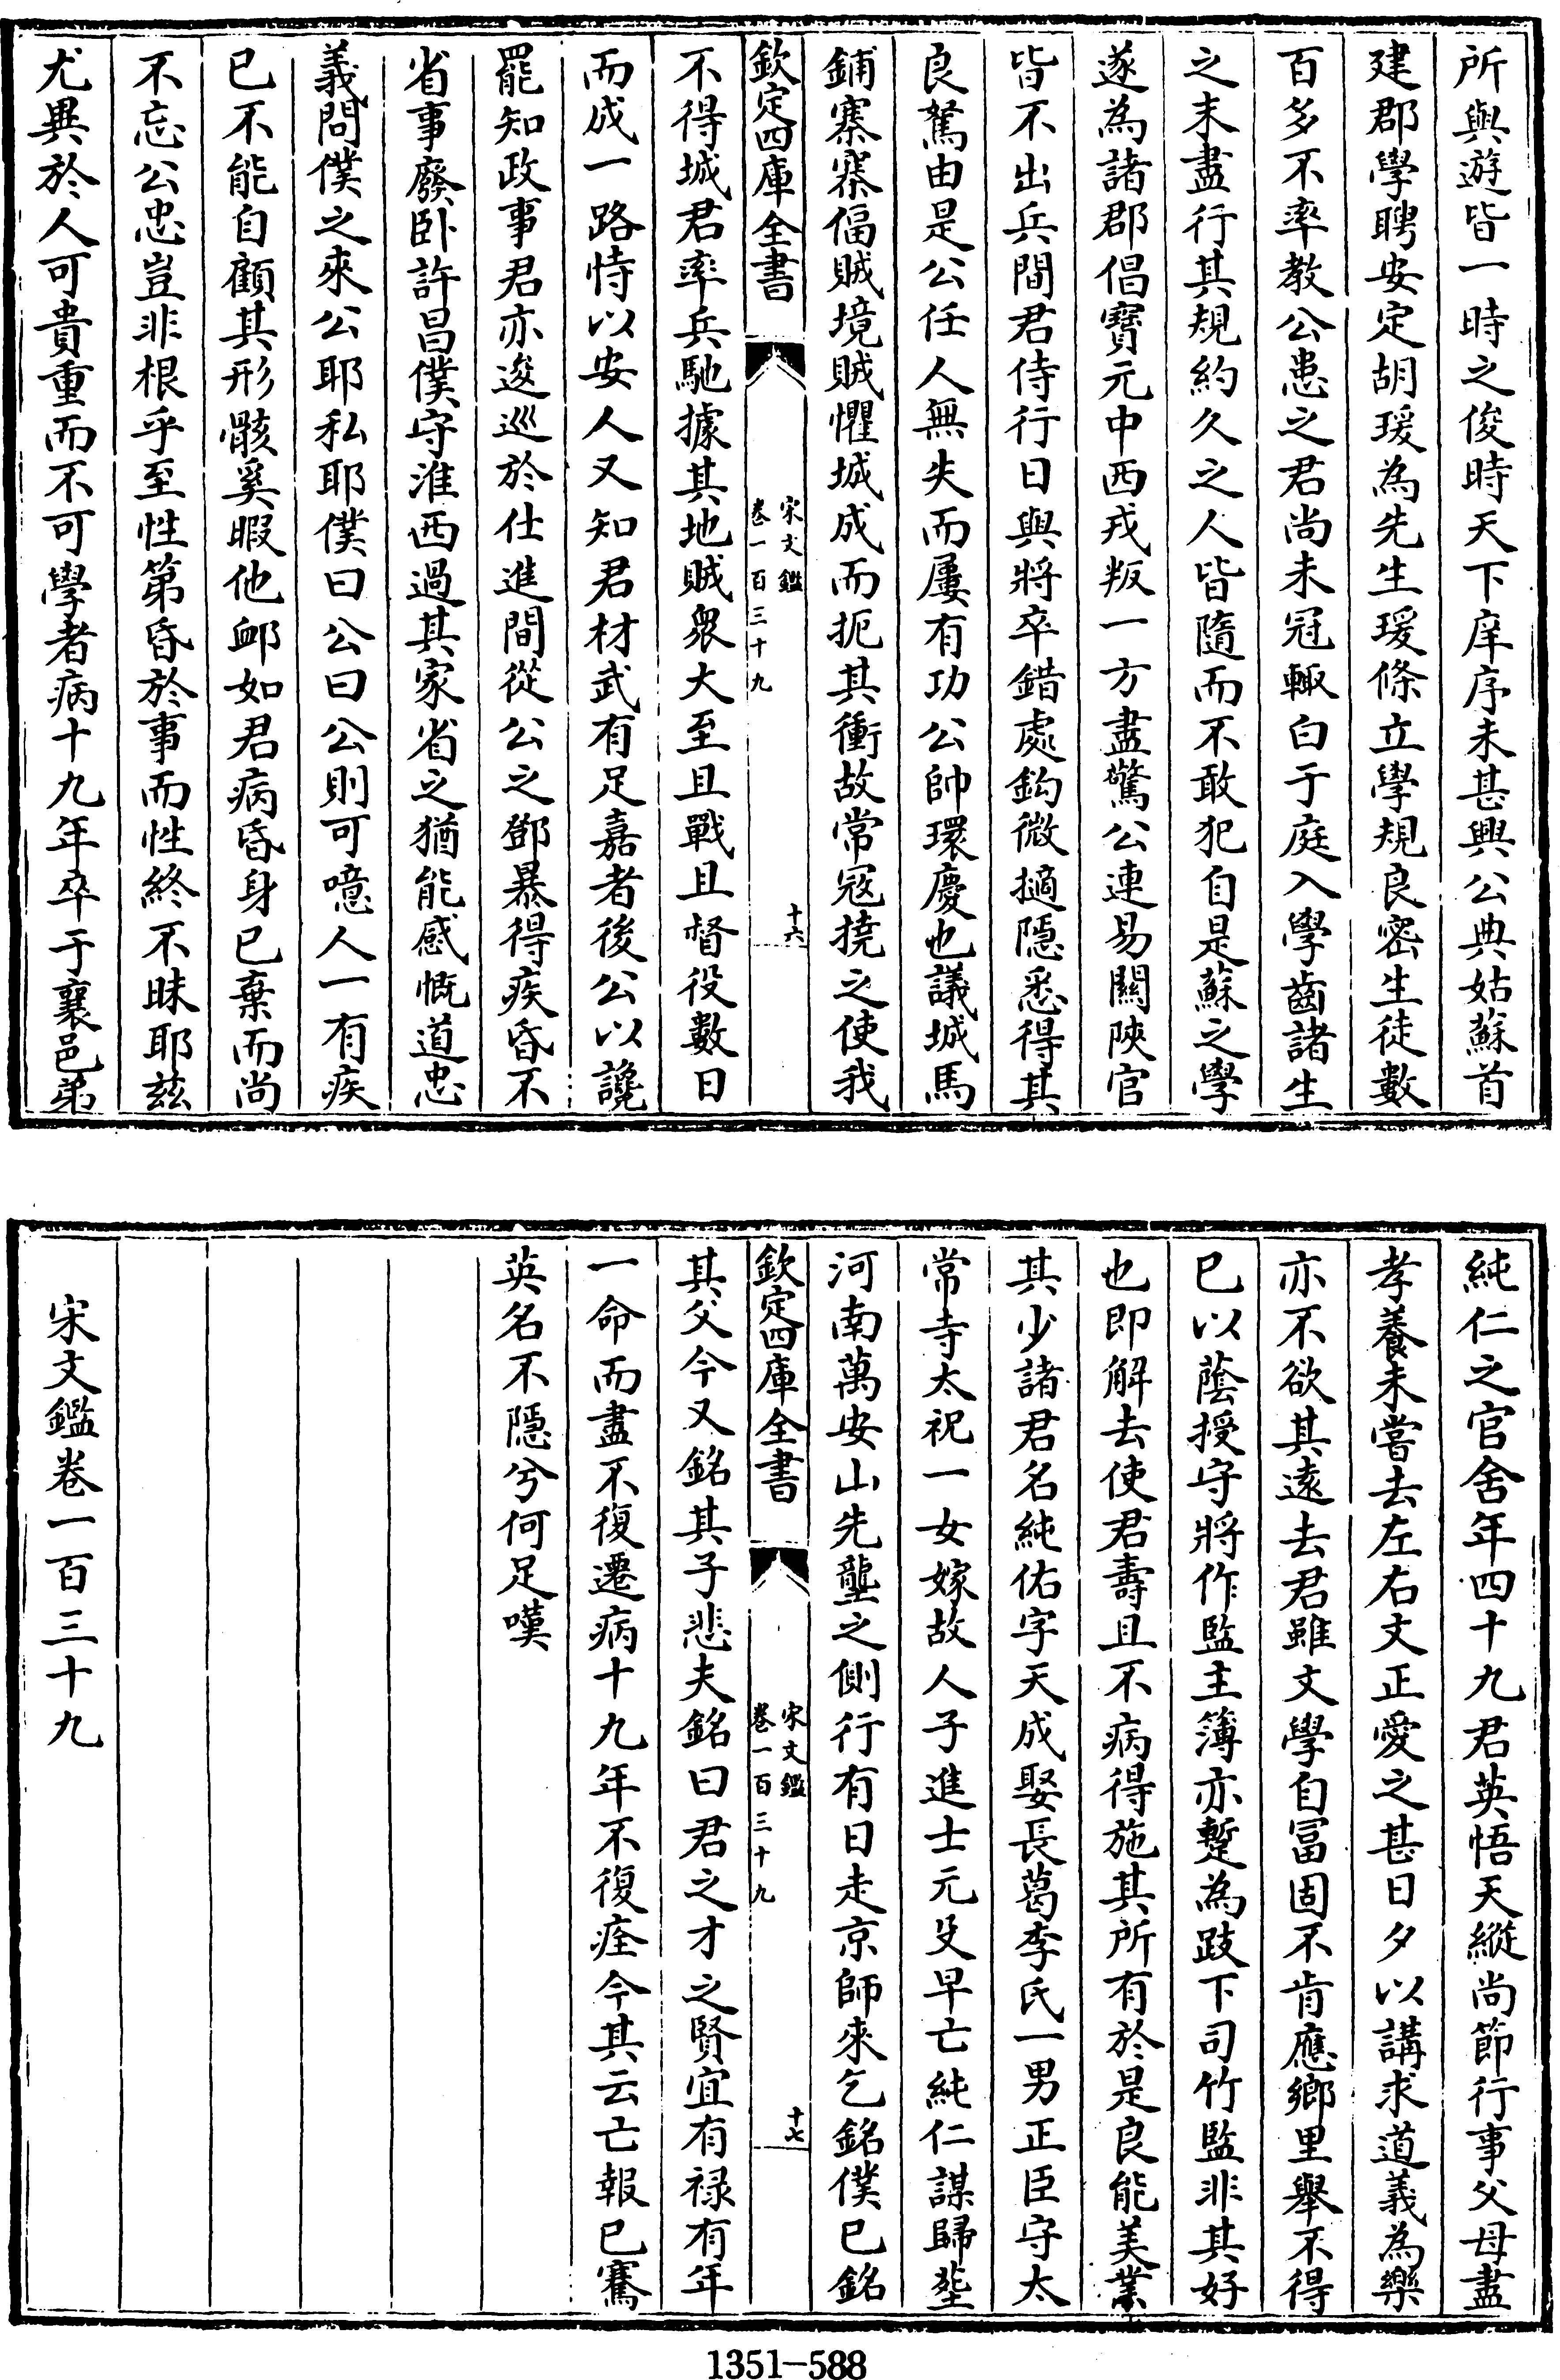 所與遊皆一時之俊時天下庠序未甚興公典姑蘇首
建郡學聘安定胡瑗為先生瑗條立學規良密生徒數
百多不率教公患之君尚未冠輙白于庭入學齒諸生
之末盡行其規約久之人皆隨而不敢犯自是蘇之學
遂為諸郡倡寳元中西戎叛一方盡驚公連易關陝官
皆不出兵間君侍行日與將卒錯處鈎微擿隱悉得其
良駑由是公任人無失而屢有功公帥環慶也議城馬
鋪寨寨偪賊境賊懼城成而扼其衝故常冦撓之使我
不得城君率兵馳據其地賊衆大至且戰且督役數日
而成一路恃以安人又知君材武有足嘉者後公以讒
罷知政事君亦逡巡於仕進間從公之鄧暴得疾昏不
省事廢卧許昌僕守淮西過其家省之猶能感慨道忠
義問僕之來公耶私耶僕曰公曰公則可噫人一有疾
已不能自顧其形骸奚暇他卹如君病昏身已棄而尚
不忘公忠豈非根乎至性第昏於事而性終不昧耶兹
尤異於人可貴重而不可學者病十九年卒于襄邑弟
欽定四庫全書
宋文鑑
卷一百三十九
十六
純仁之官舍年四十九君英悟天縱尚節行事父母盡
孝養未嘗去左右文正愛之甚日夕以講求道義為樂
亦不欲其遠去君雖文學自冨固不肯應鄉里舉不得
已以蔭授守將作監主簿亦蹔為跂下司竹監非其好
也即解去使君壽且不病得施其所有於是良能美業
其少諸君名純佑字天成娶長葛李氏一男正臣守太
常寺太祝一女嫁故人子進士元㕛早亡純仁謀歸塟
河南萬安山先壟之側行有日走京師來乞銘僕已銘
其父今又銘其子悲夫銘曰君之才之賢宜有禄有年
一命而盡不復遷病十九年不復痊今其云亡報已騫
英名不隱兮何足嘆
宋文鑑卷一百三十九
欽定四庫全書
宋文鑑
卷一百三十九
十七
1351-588